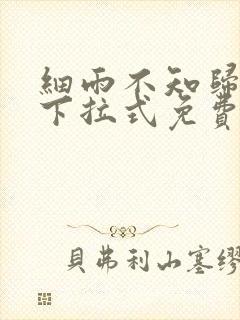 細雨不知歸
下拉式免費
貝弗利山塞繆